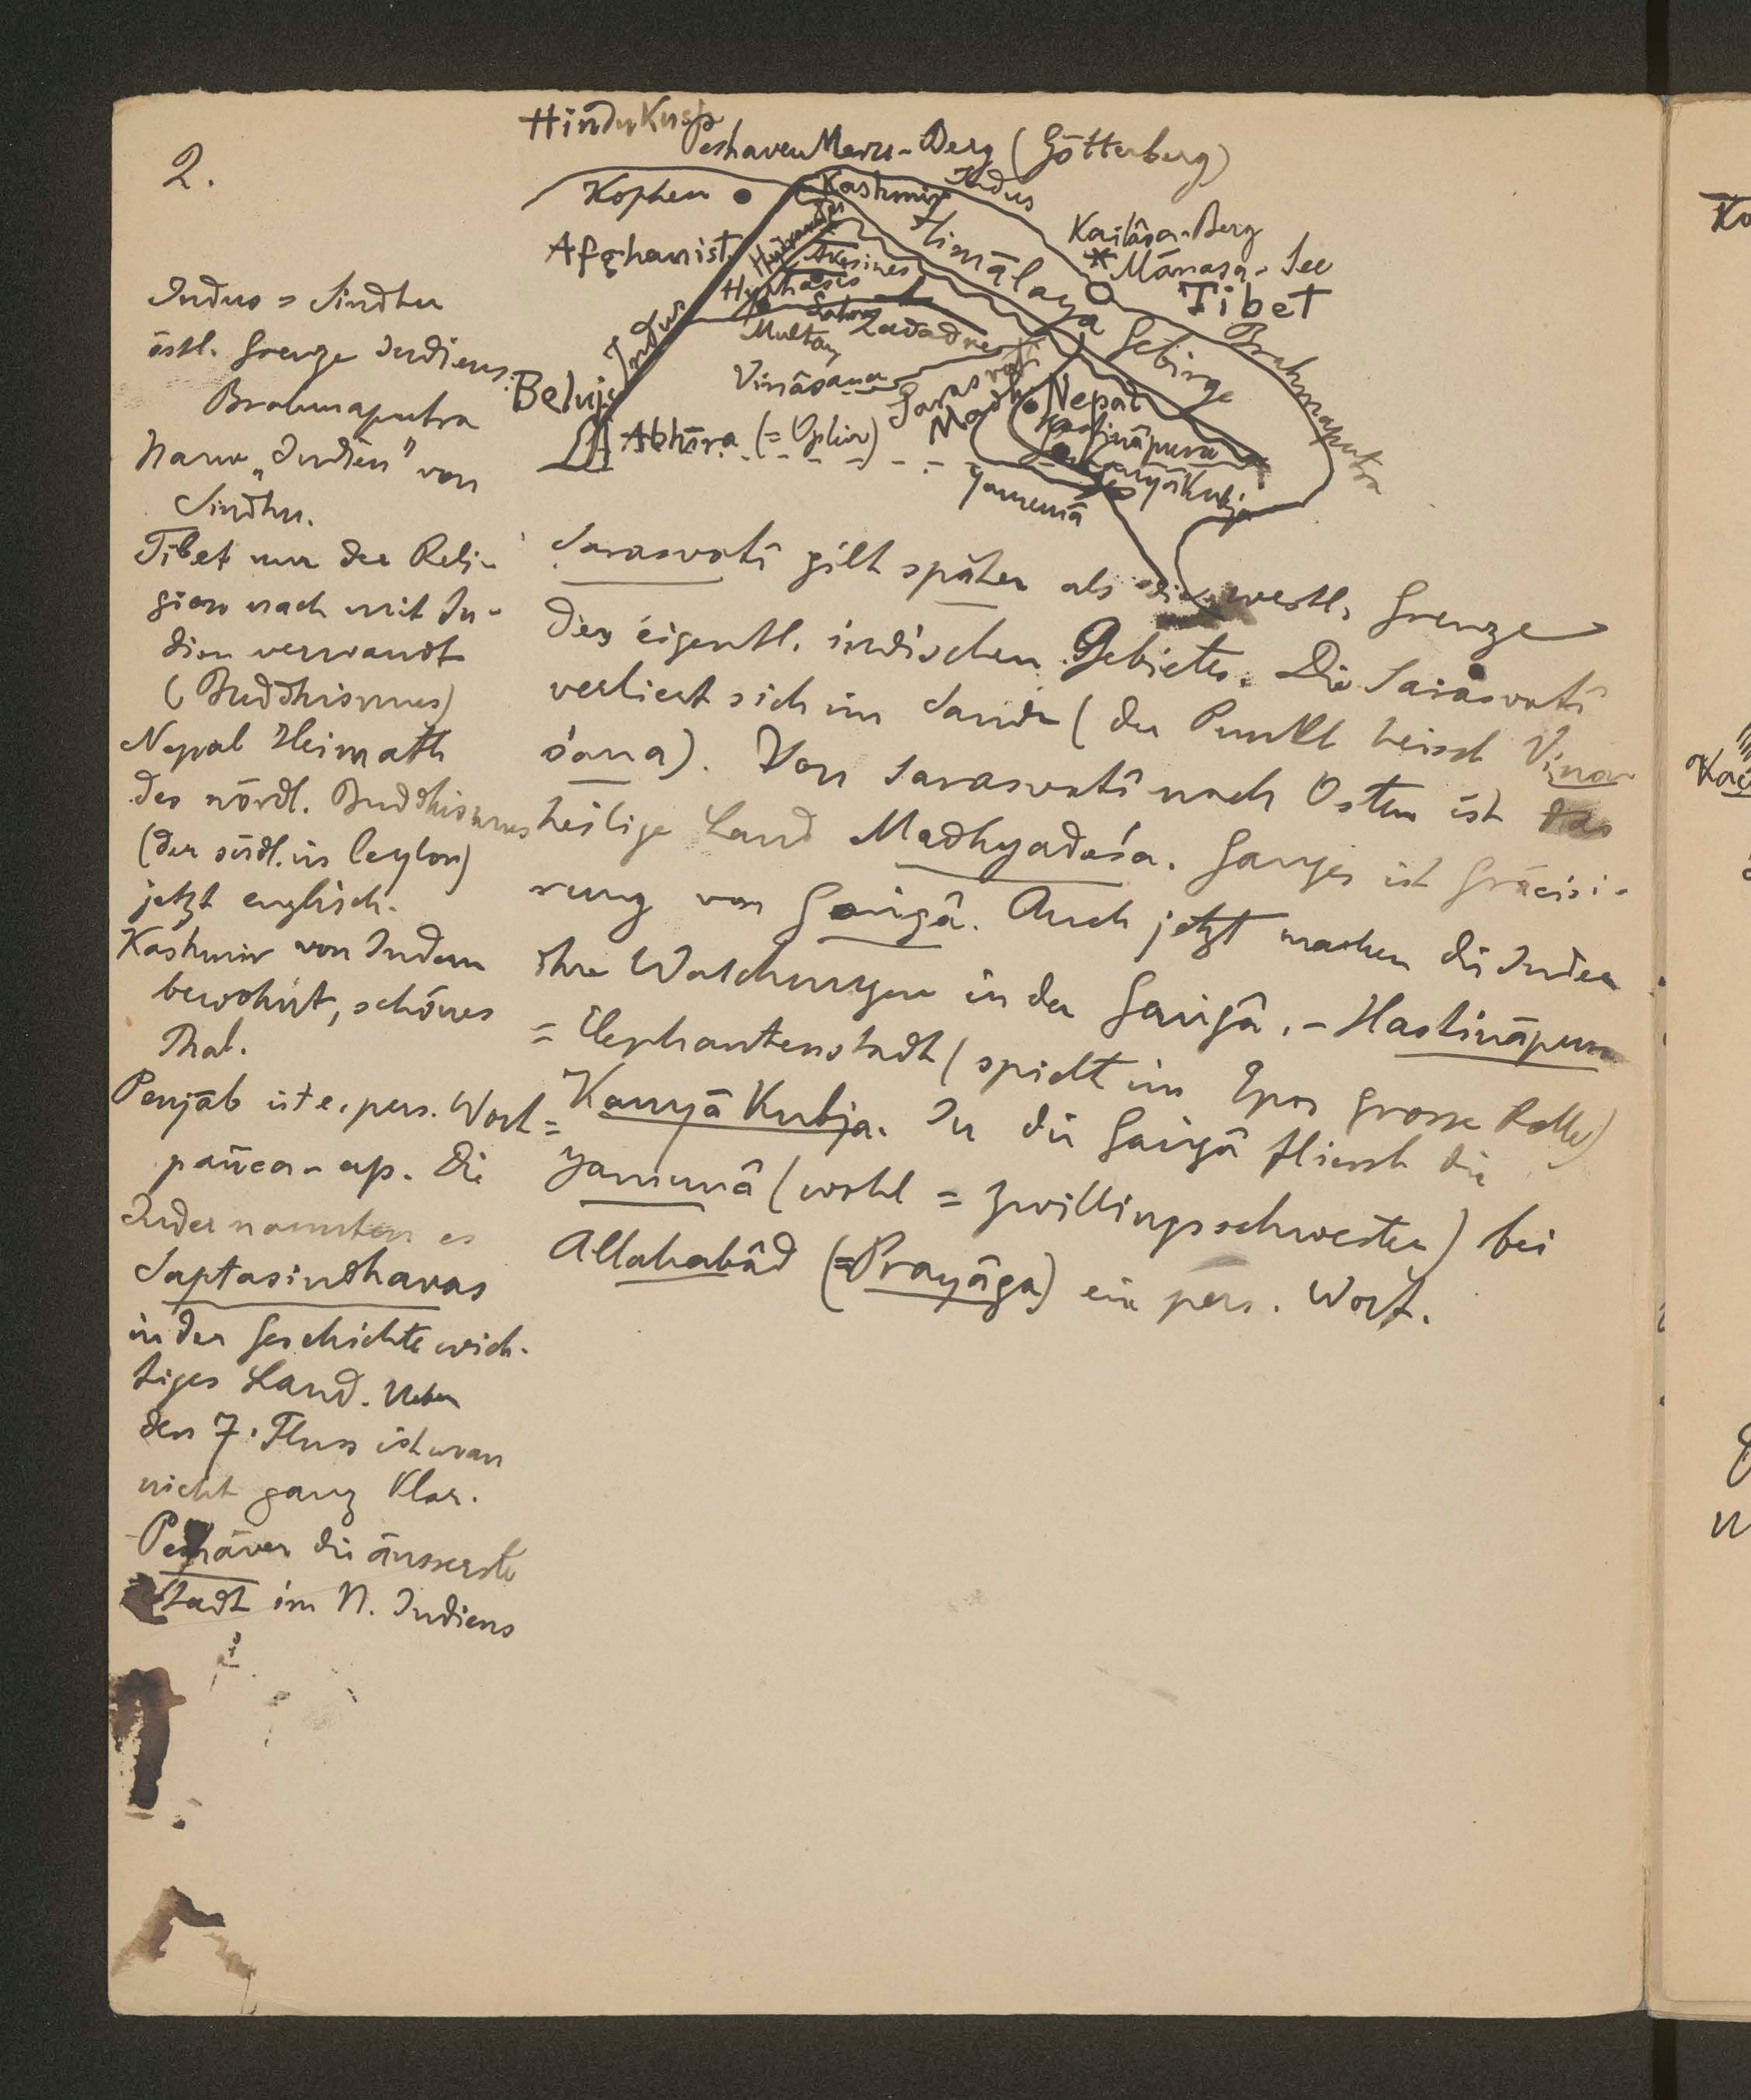 2.
HinduKush
Peshaver Meru-Berg (Götterberg)
Kophen
Kashmir
Indus
Afghanist.
Himâlaya Gebirge
Kailâsa-Berg
Mânasa-See
Tibet
Brahmaputra
Akesines
Hyphasis
Multan
Zadadres
Indus
Beluj
Vinâsana
Sarasvatî
Nepal
Abhîra (= Ophir)
Hastinâpura
KanyâKubja
Yamunâ
Indus = Sindhu
östl. Grenze Indiens:
Brahmaputra
Name „Indien" von
Sindhu.
Tibet nur der Reli-
gion nach mit In-
dien verwandt
(Buddhismus)
Nepal Heimath
des nördl. Buddhismus
(der südl. in Ceylon)
jetzt englisch.
Kashmir von Indern
bewohnt, schönes
Thal.
Penjâb ist e. pers. Wort =
pañca-ap. Die
Inder nannten es
Saptasindhavas
in der Geschichte wich-
tiges Land. Ueber
den 7. Fluss ist man
nicht ganz klar.
Peshâver die äusserste
Stadt im N. Indiens
Sarasvatî gilt später als die westl. Grenze
des eigentl. indischen Gebietes. Die Sarasvatî
verliert sich im Sande (der Punkt heisst Vinâ-
śana). Von Sarasvatî nach Osten ist das
heilige Land Madhyadeśa. Ganges ist Gräcisi-
rung von Gaṅgâ. Auch jetzt machen die Inder
ihre Waschungen in der Gaṅgâ. - Hastinâpura
= Elephantenstadt (spielt im Epos grosse Rolle)
KanyâKubja. In die Gaṅgâ fliesst die
Yamunâ (wohl = Zwillingsschwester) bei
Allahabâd (=Prayâga) ein pers. Wort.